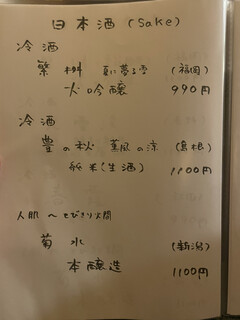 日本酒 (Sake)
冷酒
繁桝 夏に夢る雪 (福岡)
大吟醸 990円
冷酒
豊の秋 薫風の涼 (島根)
純米(生酒) 1100円
人肌 ~ とびきり燗
菊水 (新潟)
本醸造 1100円